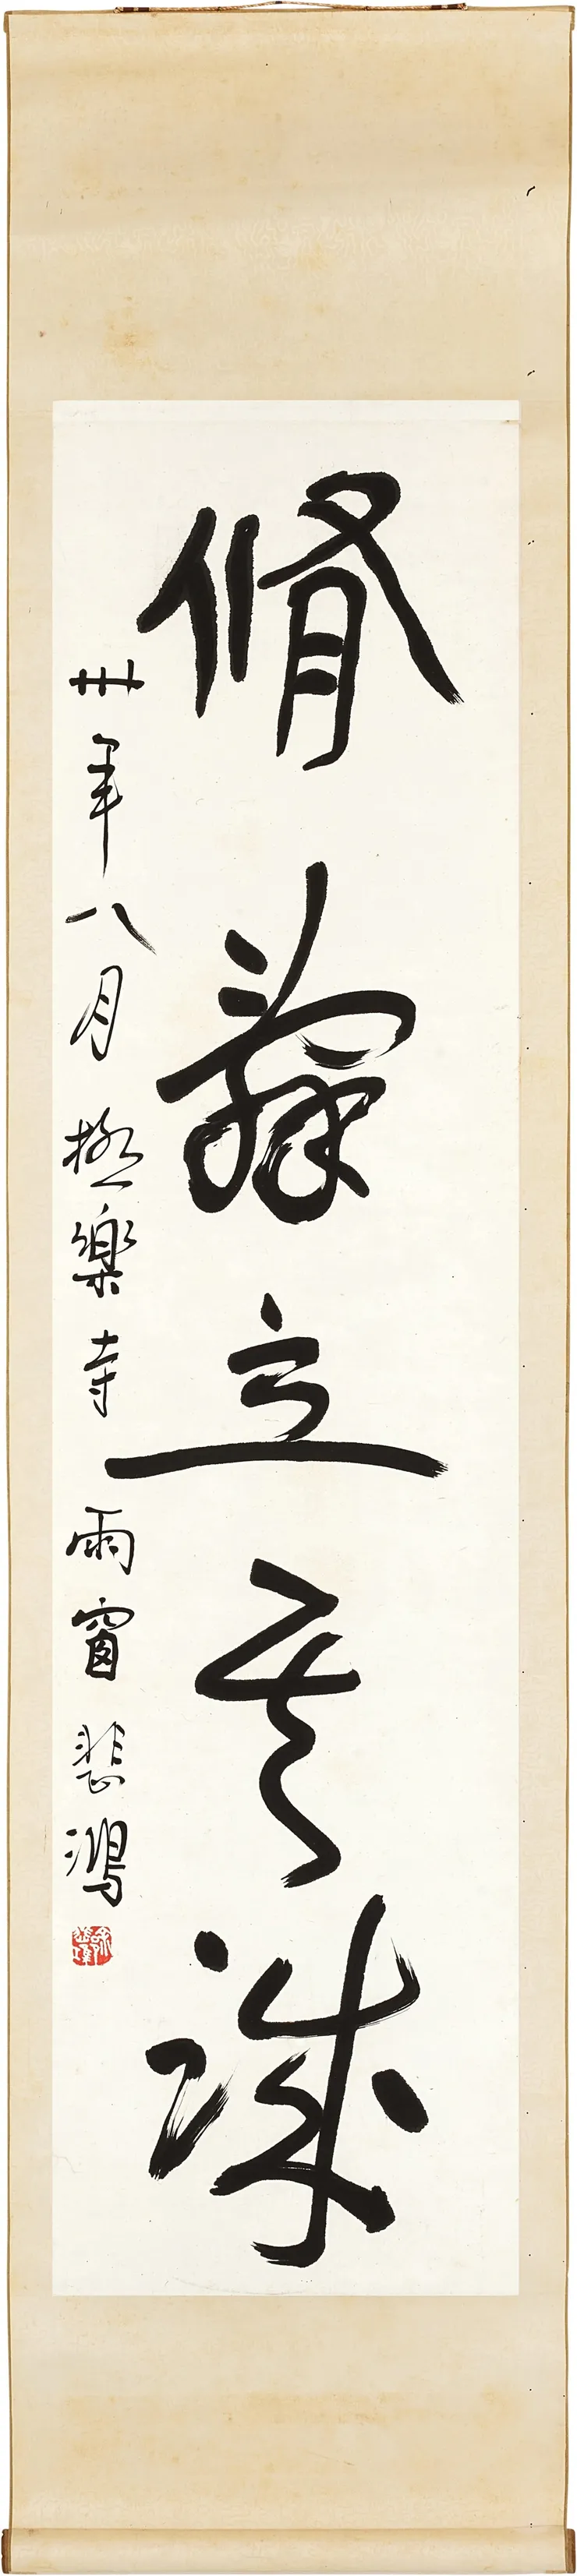 脩辭立其誠
卅年八月 極樂寺 雨窗 悲鴻